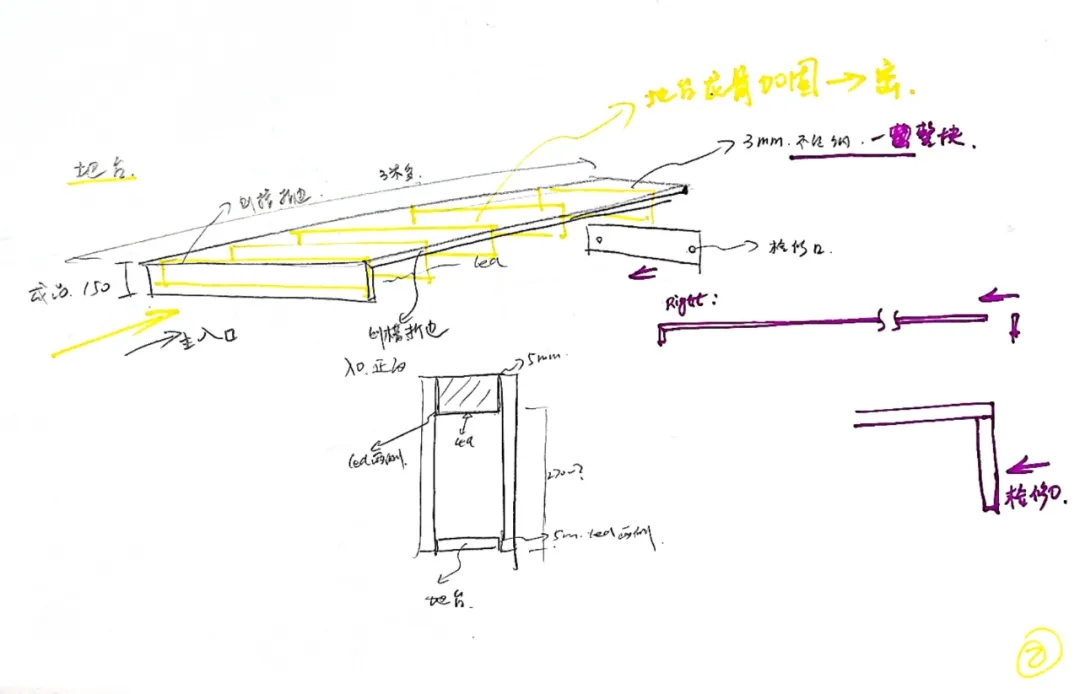 地台龙骨加固→密.
3mm.不锈钢.一整块.
地台.
3米多.
刨槽折边
检修口.
led
成活.150
Right:
刨槽折边
主入口
入口.正面
5mm.
led两侧.
led
270~?
检修口.
5mm.led两侧.
地台.
2